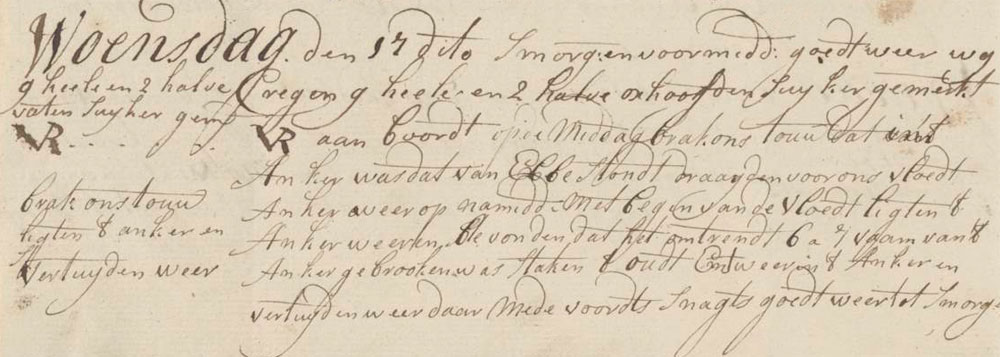 Woensdag. den 17 dito Smorgenvoormidd: goedt weer wy
9 heele en 2 halve
Cregen 9 heele en 2 halve oxhoofden Suyker gemerkt
vaten Suyker gem
VR . . . .
VR aan boordt op de Middag brak ons touw dat int
Anker was dat van Ebbe Stondt draayden voor ons vloedt
brak ons touw
Anker weer op namidd: Met begin van de vloedt ligten t
ligten t anker en
Anker weer en bevonden dat het omtrendt 6 a 7 vaam van t
vertuyden weer
Anker gebrooken was Staken t oudt Endt weer int Anker en
vertuyden weer daar Mede voordts Snagts goedt weer tot Smorg